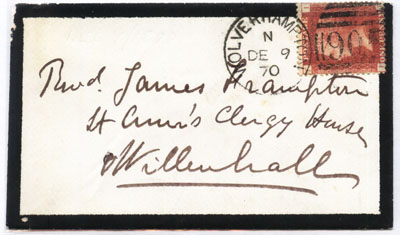 WOLVERHAMPTON
N
DE 9
70
905
Revd. James Hampton
St Ann's Clergy House
Willenhall